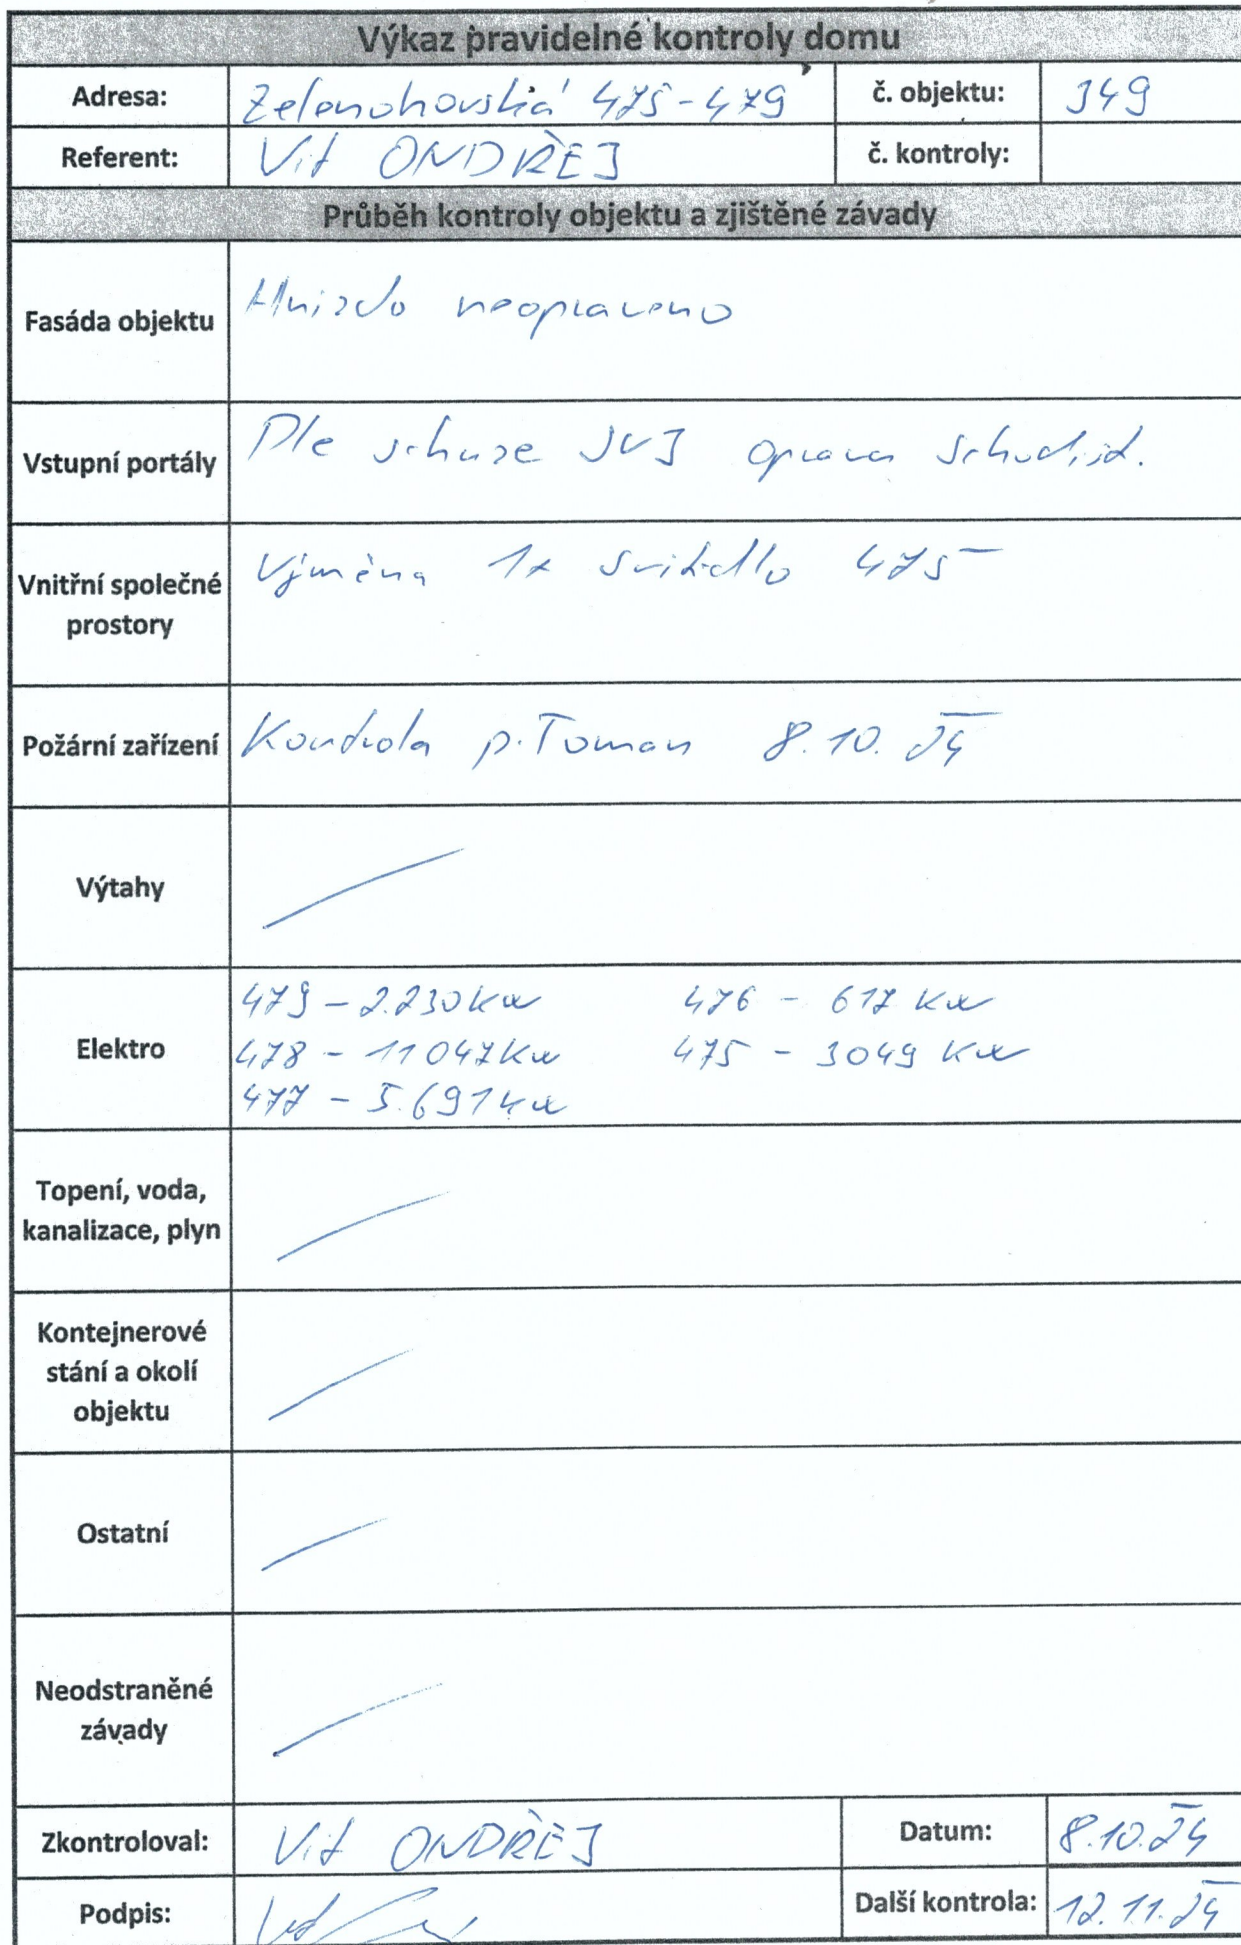 Výkaz pravidelné kontroly domu
Adresa: Zelenohorská 475-479 č. objektu: 349
Referent: Vít ONDŘEJ č. kontroly:
Průběh kontroly objektu a zjištěné závady
Fasáda objektu Hnizdo neopraveno
Vstupní portály Dle schuze SVJ oprava schodišt.
Vnitřní společné
prostory
Výměna 1x svitidlo 475
Požární zařízení Kontrola p. Toman 8.10.24
Výtahy
Elektro
479 - 2.230 Kw 476 - 617 Kw
478 - 11047 Kw 475 - 3049 Kw
477 - 5.691 kw
Topení, voda,
kanalizace, plyn
Kontejnerové
stání a okolí
objektu
Ostatní
Neodstraněné
závady
Zkontroloval: Vít ONDŘEJ Datum: 8.10.24
Podpis: Další kontrola: 12.11.24